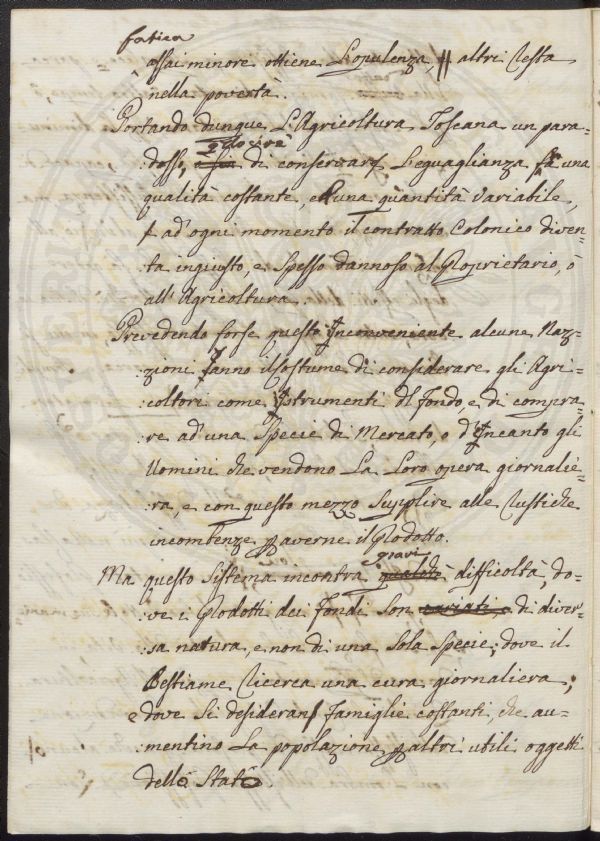 fatica
assai minore ottiene L'opulenza, altri resta
nella povertà.
Portando dunque L'Agricoltura Toscana un para=
dosso, di conservare L'eguaglianza fra una
qualità costante, e una quantità variabile,
ad' ogni momento il contratto Colonico diven=
:ta ingiusto, e spesso dannoso al Proprietario, ò
all'Agricoltura.
Prevedendo forse questo Inconveniente alcune Naz=
:zioni fanno il Costume di considerare gli Agri=
:coltori come Istrumenti del fondo, e di compra=
:re ad' una Specie di Mercato, o d'Incanto gli
Uomini che vendono La Loro opera giornalie=
:ra, e con questo mezzo Supplire alle rustiche
incombenze p averne il Prodotto.
gravi
Ma questo Sistema incontra difficoltà, do=
:ve i Prodotti dei fondi son di diver=
:sa natura, e non di una Sola Specie; dove il
Bestiame ricerca una cura giornaliera;
e dove Si desideran famiglie costanti, che au=
:mentino La popolazione p altri utili oggetti
dello Stato.